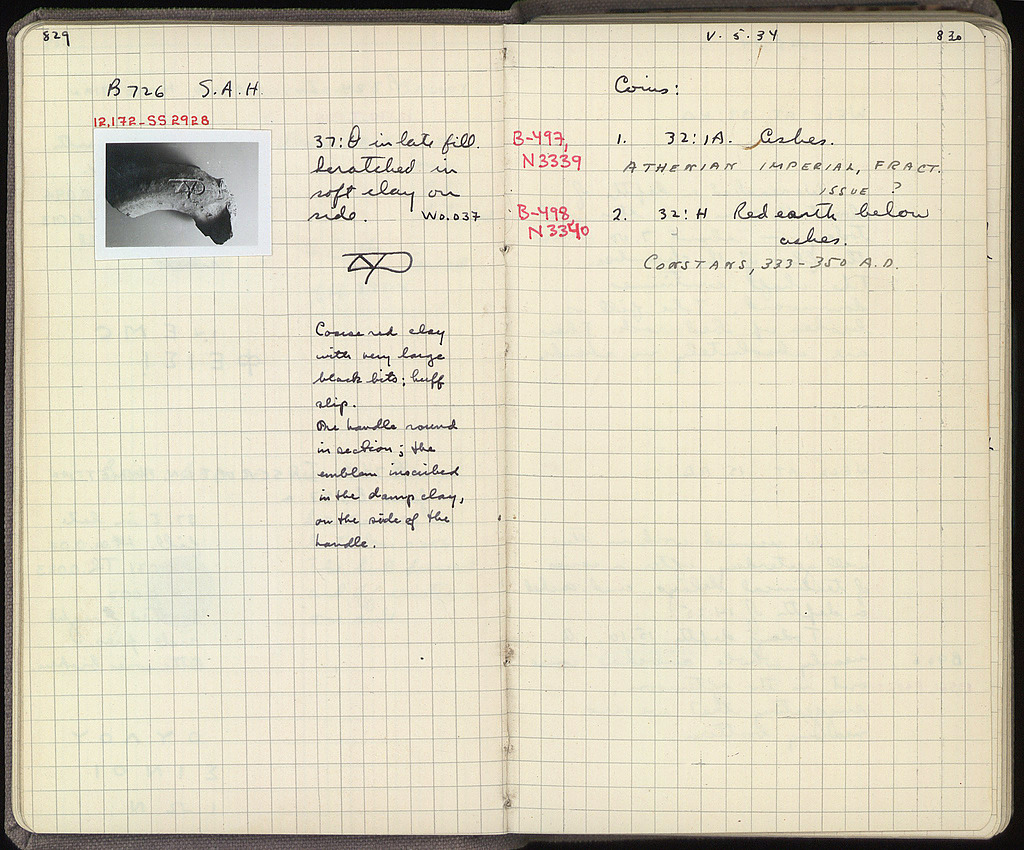 829
B726 S.A.H.
12,172-SS2928
37:Θ in late fill.
Scratched in
soft clay on
side. W0.037
Coarse red clay
with very large
black bits; buff
slip.
One handle round
in section; the
emblem inscribed
in the damp clay,
on the side of the
handle.
V. 5. 34
830
Coins:
B-497,
N3339
1. 32:1A. Ashes.
ATHENIAN IMPERIAL, FRACT.
ISSUE ?
B-498,
N3340
2. 32:H Red earth below
ashes.
CONSTANS, 333-350 A.D.